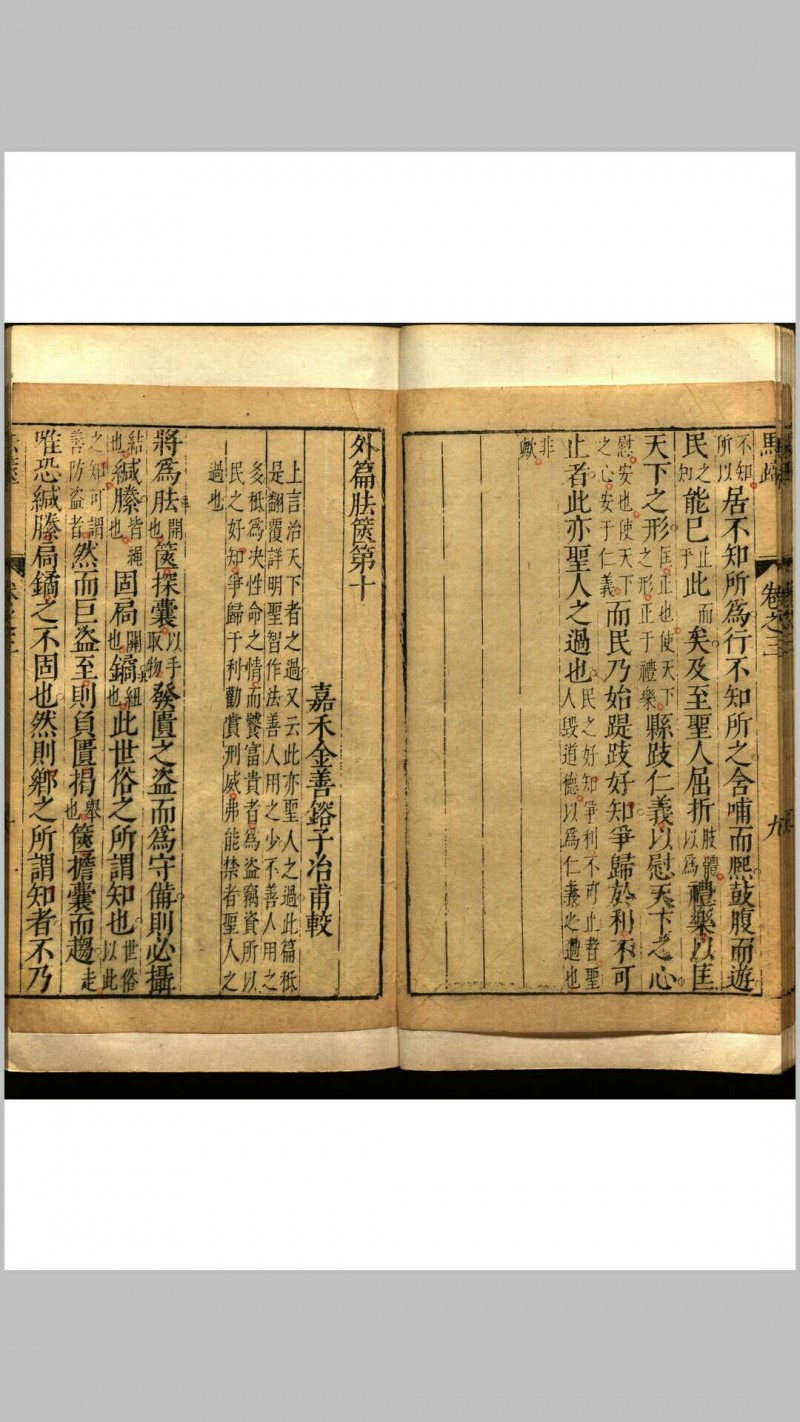 馬蹄 卷之三 九
不知所以居不知所爲行不知所之含哺而熈鼓腹而遊
民之知能已止乎此而矣及至聖人屈折肢體以爲禮樂以匡
天下之形匡正也使天下之形正于禮樂縣跂仁義以慰天下之心
慰安也使天下之心安于仁義而民乃始踶跂好知爭歸於利不可
止者此亦聖人之過也民之好知爭利不可止者聖人毀道德以爲仁義之遭也
非歟
外篇胠篋第十
嘉禾金善鎔子冶甫較
上言治天下者之過又云此亦聖人之過此篇柢
是翻覆詳明聖智作法善人用之少不善人用之
多柢爲决性命之情而饕富貴者爲盜竊資所以
民之好知爭歸于利勸賞刑威弗能禁者聖人之
過也
將爲胠開也篋探囊以手取物發匱之盜而爲守備則必攝
結也緘縢皆繩也固扃關也鐍紐也此世俗之所謂知也世俗以此
之知可謂善防盜者然而巨盜至則負匱揭舉也篋擔囊而趨走
唯恐緘縢扃鐍之不固也然則鄉之所謂知者不乃